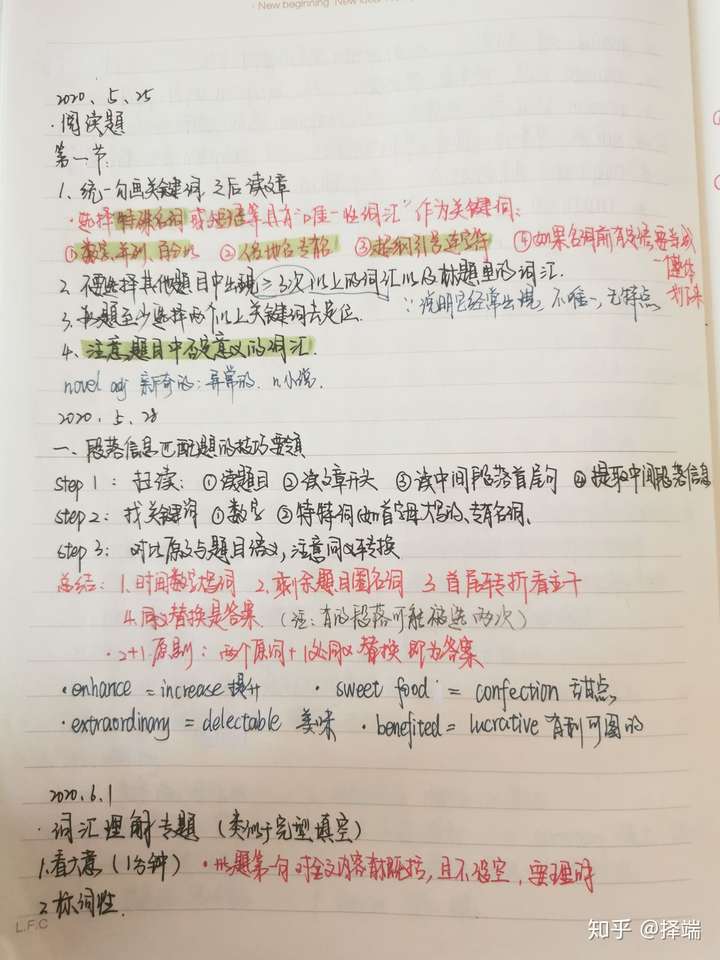 New beginning New idea
2020、5、25
·阅读题
第一节:
1、统一勾画关键词 之后读文章
·选择特殊名词或短语等具有"唯一性词汇"作为关键词:
①数字、年列、百分比 ②人名地名专名 ③括号引号连字符 ④如果名词前有定语要当成一个整体划下来
2、不要选择其他题目中出现≥3次以上的词汇以及标题里的词汇.
∵说明它经常出现,不唯一,无特点
3、每题至少选择两个以上关键词去定位.
4、注意题目中否定意义的词汇.
novel adj 新奇的;异常的. n.小说.
2020、5、28
一、段落信息匹配题的技巧要领
step 1: 扫读: ①读题目 ②读文章开头 ③读中间段落首尾句 ④提取中间段落信息
step 2: 找关键词 ①数字 ②特特词(如首字母大写的、专有名词、
step 3: 对比原文与题目语义,注意同义转换
总结: 1、时用数字大写词 2、剩余题目圈名词 3 首尾转折看主干
4.同义替换是答案. (注:有的段落可能被选两次)
·2+1原则: 两个原词+1处同义替换即为答案
·enhance = increase 提升 · sweet food = confection 甜点.
·extraordinary = delectable 美味 · benefited = lucrative 有利可图的
2020.6.1
·词汇理解专题 (类似于完型填空)
1.看大意(1分钟) ·此题第一句对全文内容有概括,且不设空,要理解
2.标词性.
L.F.C
知乎 @择端